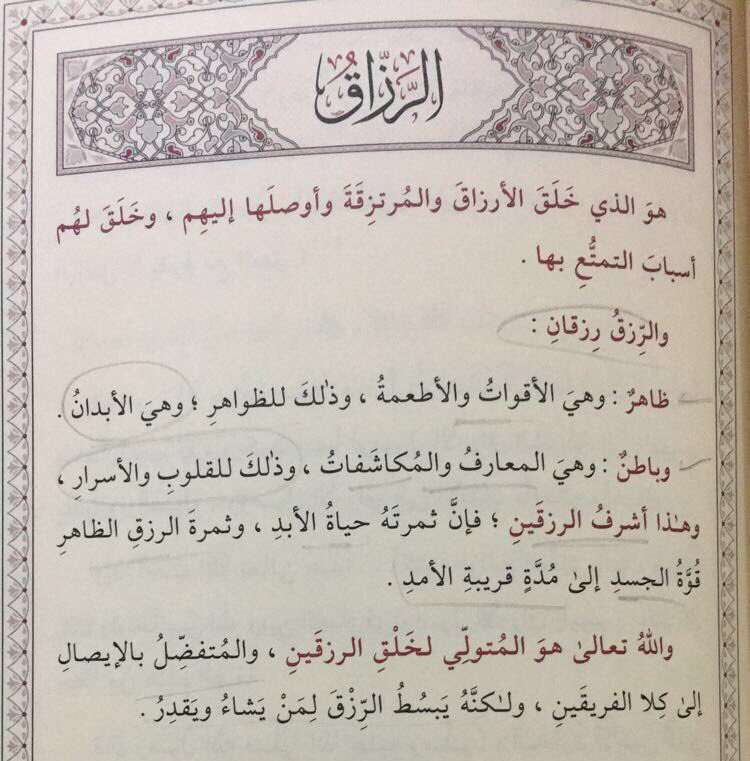 الرَّزَّاقُ
هوَ الذي خَلَقَ الأرزاقَ والمُرتزِقَةَ وأوصلَها إليهِم ، وخَلَقَ لهُم
أسبابَ التمتُّعِ بها .
والرِّزقُ رِزقانِ :
ظاهرٌ : وهيَ الأقواتُ والأطعمةُ ، وذٰلكَ للظواهرِ ؛ وهيَ الأبدانُ .
وباطنٌ : وهيَ المعارفُ والمُكاشَفاتُ ، وذٰلكَ للقلوبِ والأسرارِ ،
وهٰذا أشرفُ الرزقَينِ ؛ فإنَّ ثمرتَهُ حياةُ الأبدِ ، وثمرةَ الرزقِ الظاهرِ
قوَّةُ الجسدِ إلىٰ مُدَّةٍ قريبةِ الأمدِ .
واللهُ تعالىٰ هوَ المُتولِّي لخَلْقِ الرزقَينِ ، والمُتفضِّلُ بالإيصالِ
إلىٰ كِلا الفريقَينِ ، ولٰكنَّهُ يَبسُطُ الرِّزْقَ لِمَنْ يَشاءُ ويَقدِرُ .